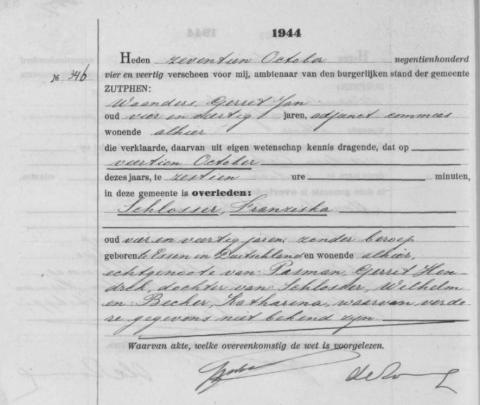 1944
Heden zeventien October negentienhonderd
№ 346 vier en veertig verscheen voor mij, ambtenaar van den burgerlijken stand der gemeente
ZUTPHEN:
Waanders, Gerret Jan
oud vier en dertig jaren, adjunct commies
wonende alhier
die verklaarde, daarvan uit eigen wetenschap kennis dragende, dat op
veertien October
dezes jaars, te zestien ure minuten,
in deze gemeente is overleden:
Schlosser, Franziska
oud vier en veertig jaren, zonder beroep
geboren te Essen in Duitschland en wonende alhier,
echtgenoote van Pasman, Gerret Hen-
drik, dochter van Schlosser, Wilhelm
en Becher, Katharina, waarvan verde-
re gegevens niet bekend zijn
Waarvan akte, welke overeenkomstig de wet is voorgelezen.